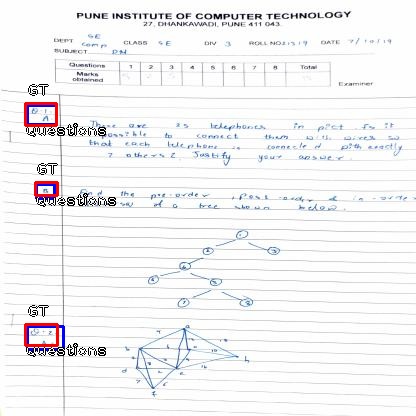 PUNE INSTITUTE OF COMPUTER TECHNOLOGY
27, DHANKAWADI, PUNE 411 043.
DEPT SE Comp CLASS SE DIV 3 ROLL NO. 21519 DATE 7/10/19
SUBJECT DM
Questions 1 2 3 4 5 6 7 8 Total
Marks obtained
Examiner
GT
Q 1
A
Questions
There are 25 telephones in pict. Is it
possible to connect them with wires so
that each telephone is connected with exactly
7 others? Justify your answer.
GT
B
Questions
Find the pre-order, post-order & in-order
of a tree shown below.
GT
Q-2
A
Questions